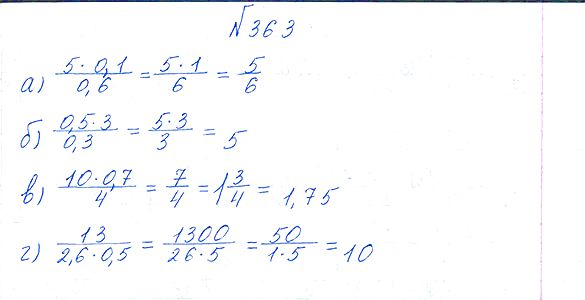 №363
а) 5·0,1/0,6 = 5·1/6 = 5/6
б) 0,5·3/0,3 = 5·3/3 = 5
в) 10·0,7/4 = 7/4 = 1 3/4 = 1,75
г) 13/2,6·0,5 = 1300/26·5 = 50/1·5 = 10